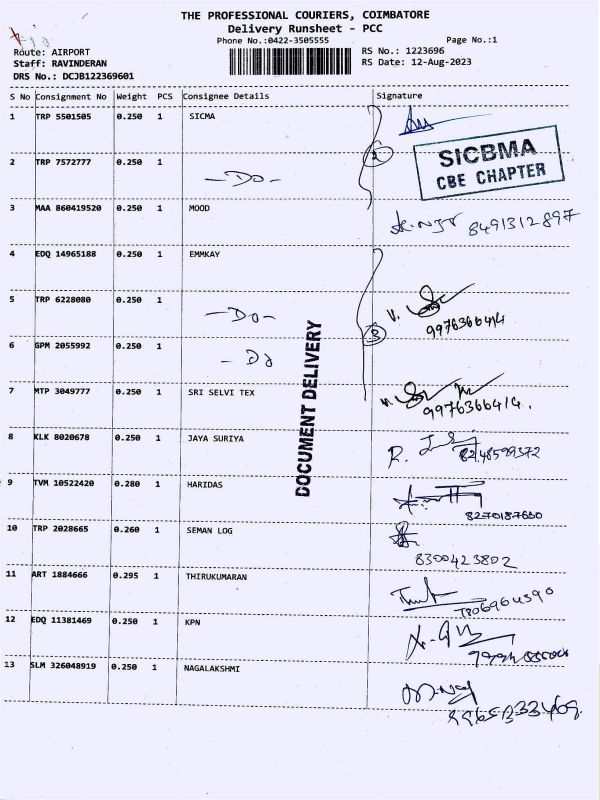 THE PROFESSIONAL COURIERS, COIMBATORE
Delivery Runsheet - PCC
Phone No.:0422-3505555 Page No.:1
Route: AIRPORT RS No.: 1223696
Staff: RAVINDERAN RS Date: 12-Aug-2023
DRS No.: DCJB122369601
S No Consignment No Weight PCS Consignee Details Signature
1 TRP 5501505 0.250 1 SICMA
SICBMA
CBE CHAPTER
2 TRP 7572777 0.250 1
2
-Do-
3 MAA 860419520 0.250 1 MOOD
8491312897
4 EDQ 14965188 0.250 1 EMMKAY
5 TRP 6228080 0.250 1
-Do-
9976366414
3
6 GPM 2055992 0.250 1
- Do
DOCUMENT DELIVERY
7 MTP 3049777 0.250 1 SRI SELVI TEX
9976366414.
8 KLK 8020678 0.250 1 JAYA SURIYA
8248599372
9 TVM 10522420 0.280 1 HARIDAS
8270187650
10 TRP 2028665 0.260 1 SEMAN LOG
8300423802
11 ART 1884666 0.295 1 THIRUKUMARAN
7806964390
12 EDQ 11381469 0.250 1 KPN
13 SLM 326048919 0.250 1 NAGALAKSHMI